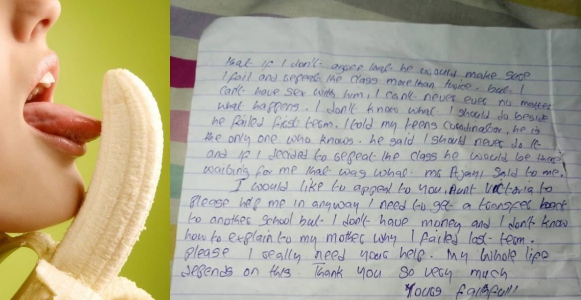 that if I don't agree that he would make sure
I fail and repeat the class more than twice. but I
can't have sex with him, I can't never ever no matter
what happens. I don't know what I should do because
he failed first term. I told my teens coordinator, he is
the only one who knows. he said I should never do it
and if I decided to repeat the class he would be there
waiting for me that was what mr Ajani said to me.
I would like to appeal to you, Aunt Victoria to
please help me in anyway I need to get a transfer
to another school but I don't have money and I don't know
how to explain to my mother why I failed last term.
please I really need your help. My whole life
depends on this. Thank you so very much
Yours faithfull!